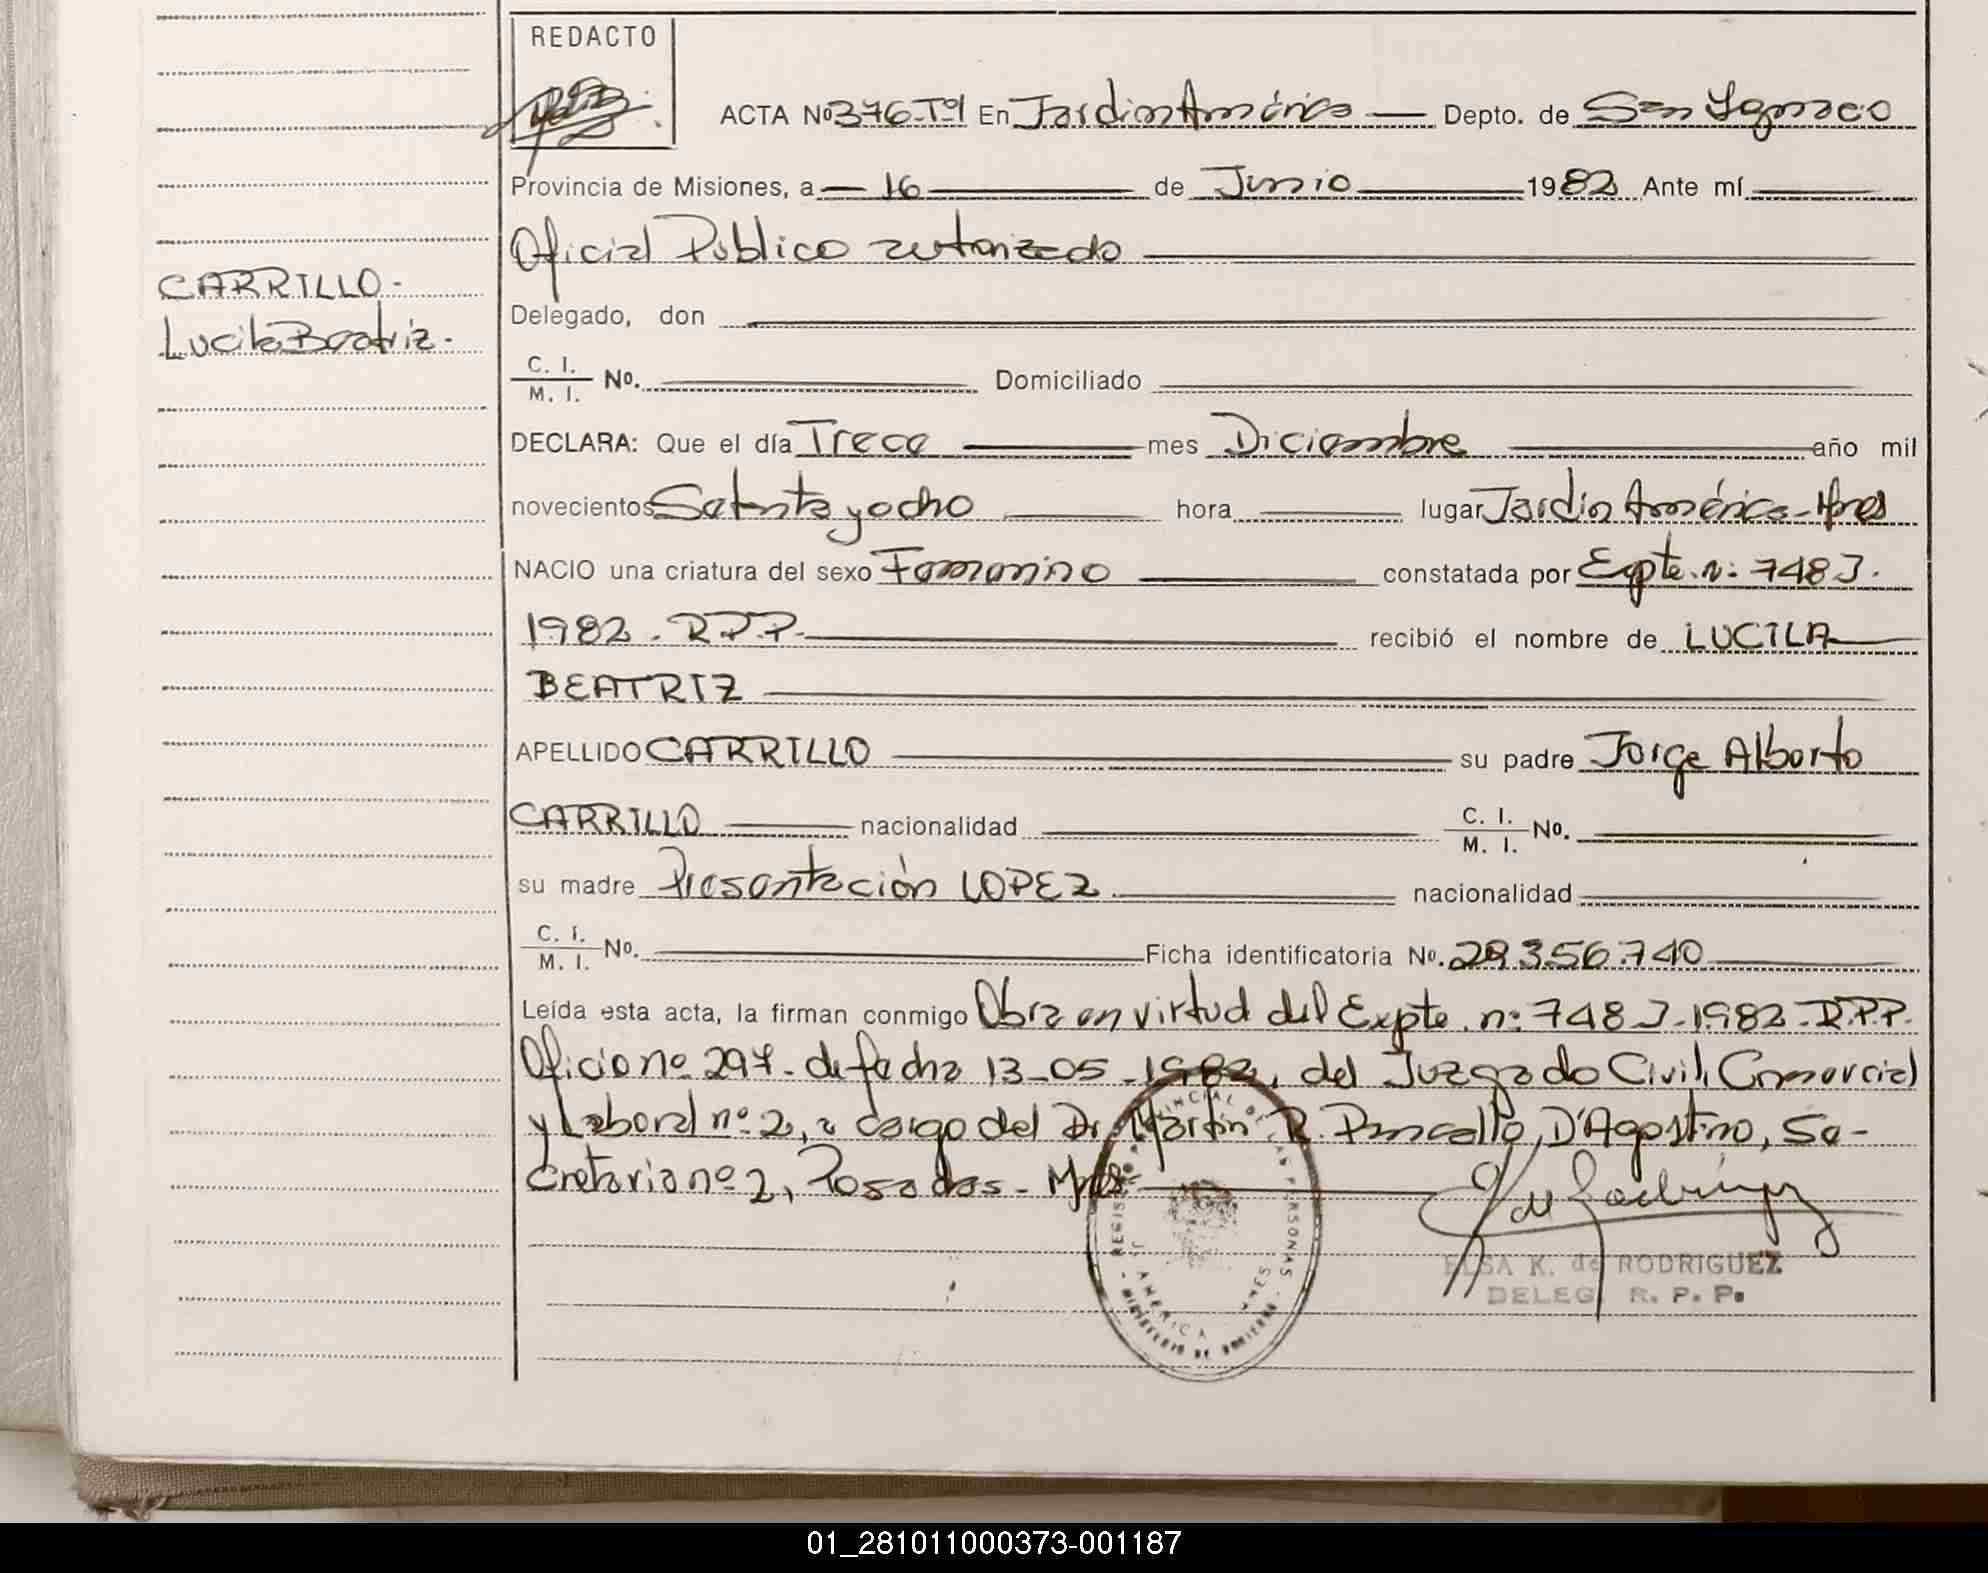 REDACTO
ACTA Nº 376-Tº1 En Jardin América Depto. de San Ignacio
Provincia de Misiones, a 16 de Junio 1982 Ante mí
Oficial Público autorizado
CARRILLO-
Lucila Beatriz-
Delegado, don
C. I.
M. I. Nº. Domiciliado
DECLARA: Que el día Trece mes Diciembre año mil
novecientos Setenta y ocho hora lugar Jardin América-Mnes
NACIO una criatura del sexo Femenino constatada por Expte. nº 748 J.
1982. R.P.P. recibió el nombre de LUCILA
BEATRIZ
APELLIDO CARRILLO su padre Jorge Alberto
CARRILLO nacionalidad C. I.
M. I. Nº.
su madre Presentación LOPEZ nacionalidad
C. I.
M. I. Nº. Ficha identificatoria Nº. 29.356.740
Leída esta acta, la firman conmigo Obra en virtud del Expte. nº 748 J-1982-R.P.P.
Oficio nº 297- de fecha 13-05-1982, del Juzgado Civil, Comercial
y Laboral nº 2, a cargo del Dr. Martín R. D'Agostino, Se-
cretaria nº 2, Posadas- Mnes-
REGISTRO PROVINCIAL DE LAS PERSONAS
J. AMERICA MNES
MINISTERIO DE GOBIERNO
ELSA K. de RODRIGUEZ
DELEG. R. P. P.
01_281011000373-001187